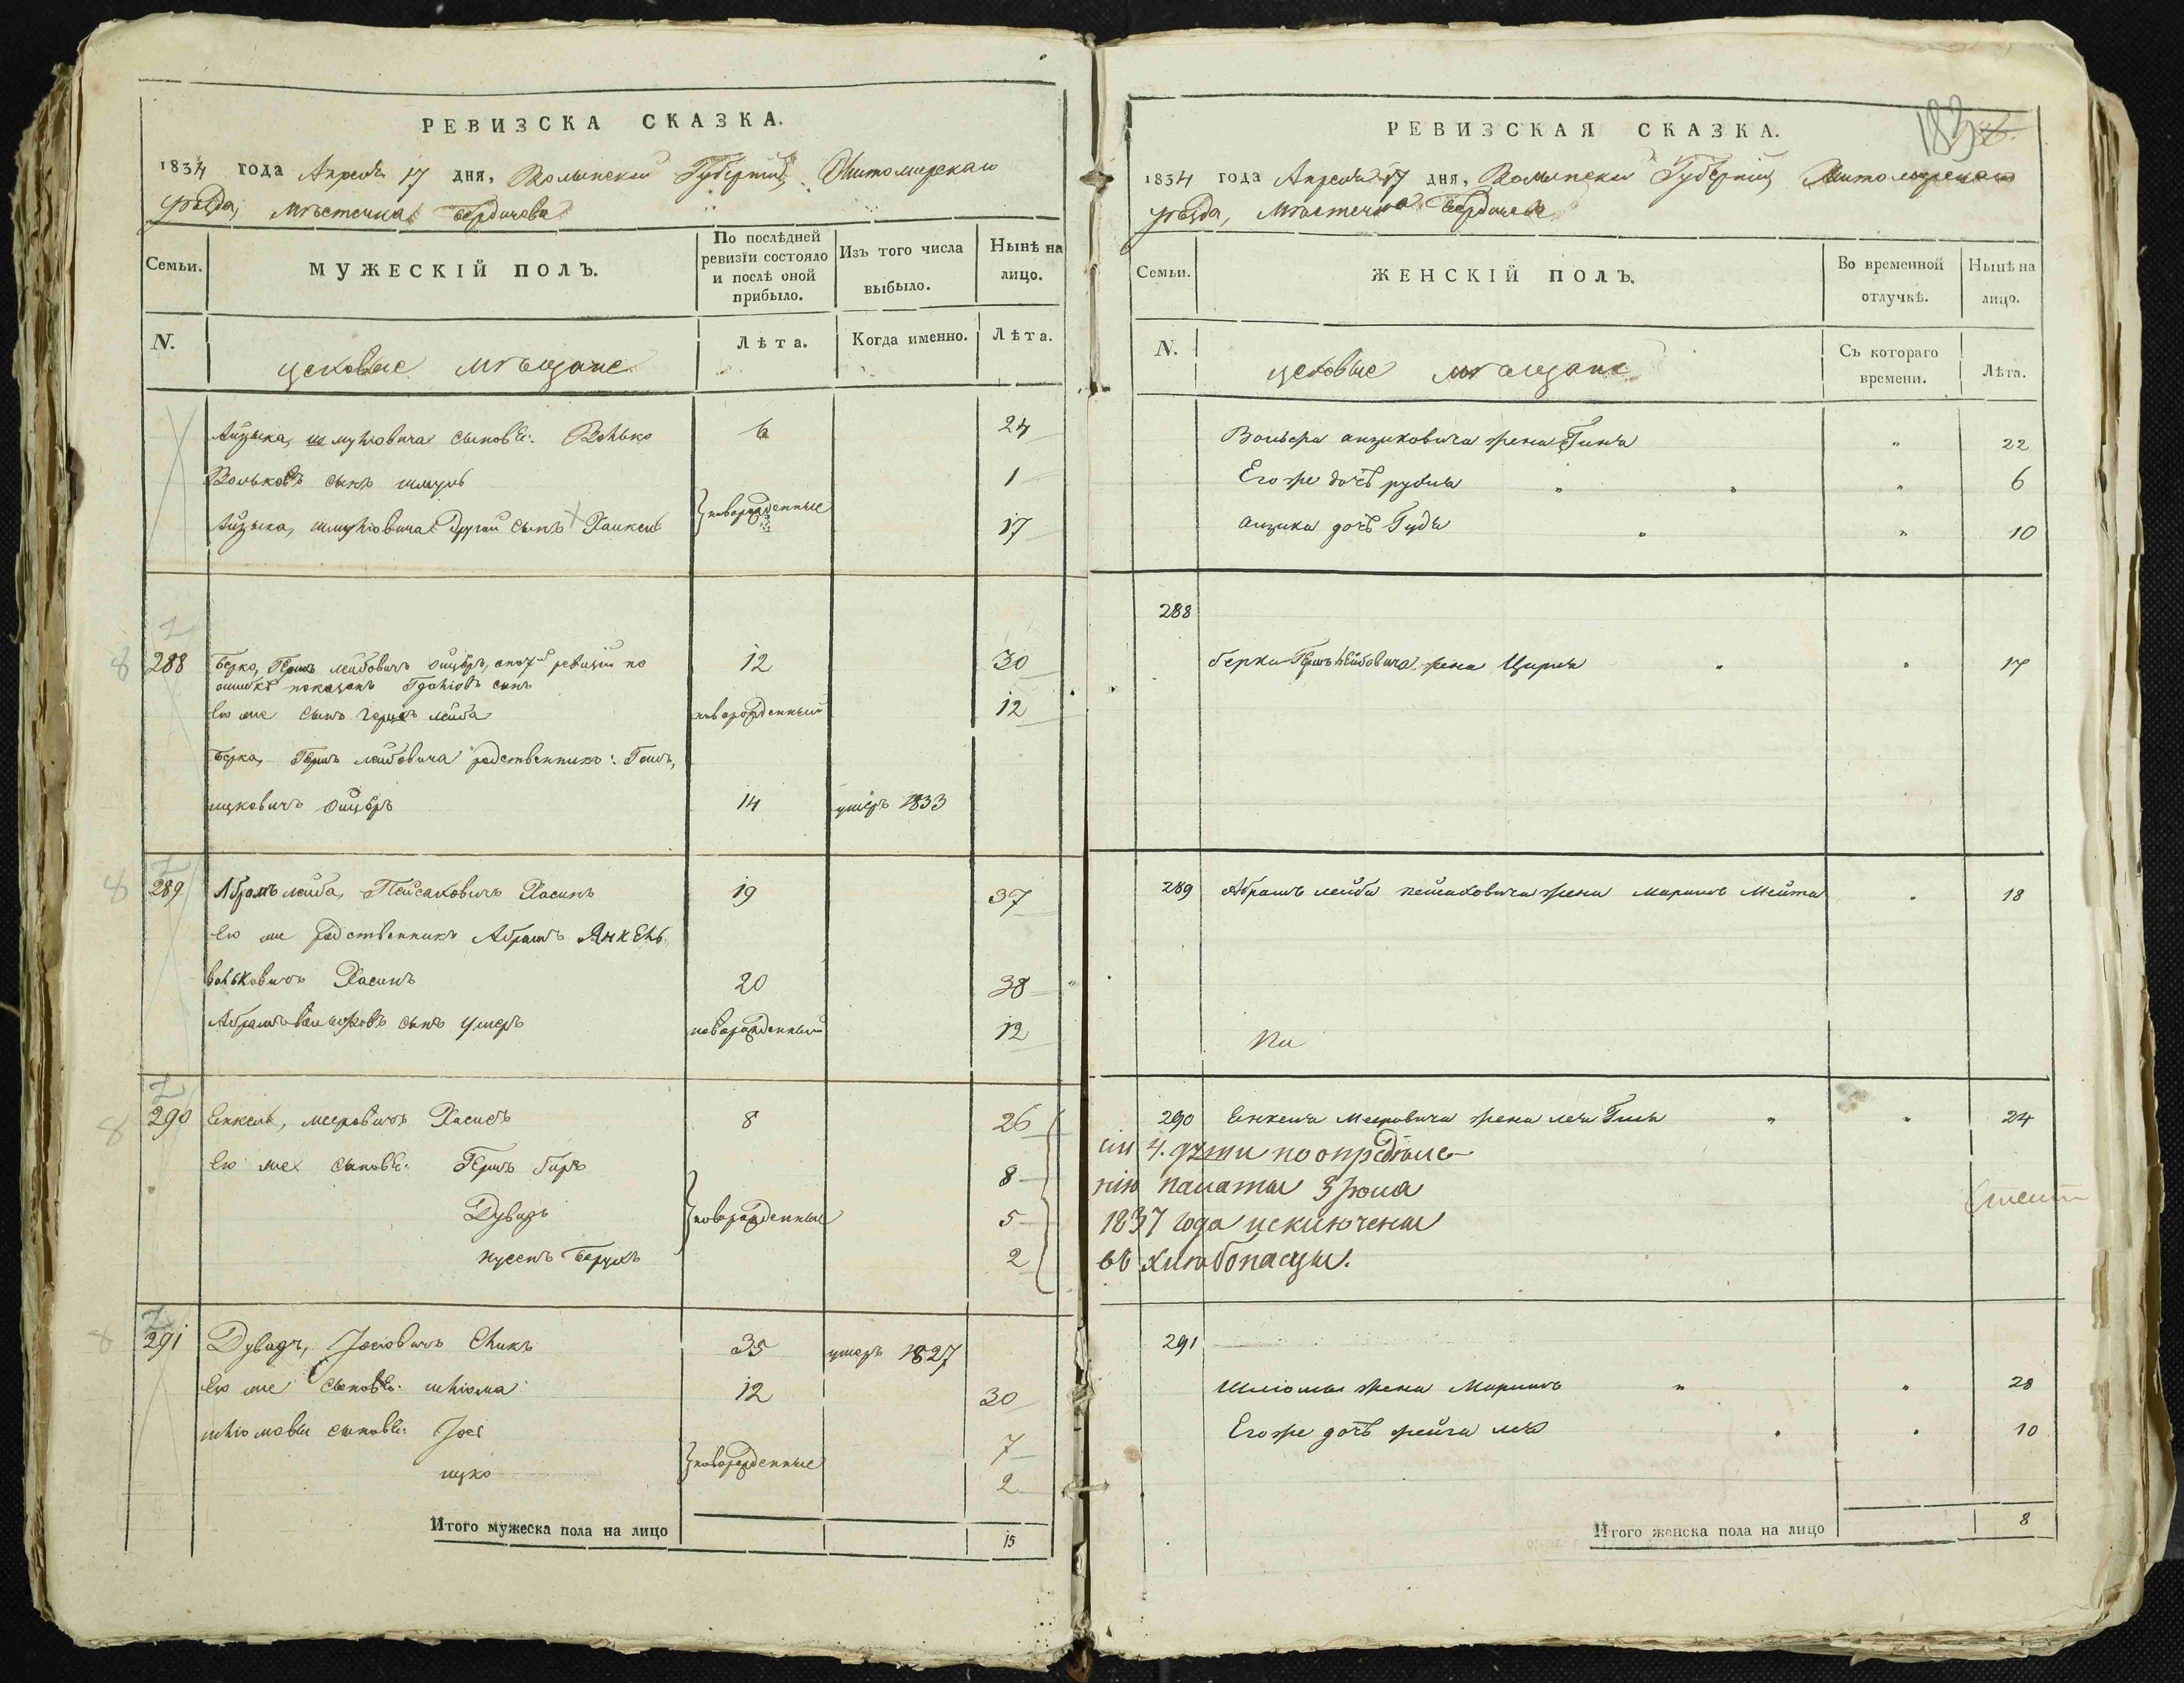 РЕВИЗСКА СКАЗКА.
1834 года Апреля 17 дня, Волынской Губерніи, Житомирскаго
уѣзда, мѣстечка Бердичева
Семьи.
МУЖЕСКІЙ ПОЛЪ.
По послѣдней
ревизіи состояло
и послѣ оной
прибыло.
Изъ того числа
выбыло.
Нынѣ на
лицо.
N.
цеховые мѣщане
Лѣта.
Когда именно.
Лѣта.
Айзыка, шмулiовича сыновье: Волько 6 24
Вольковъ сынъ шмуль 1
новорожденные
Айзыка, шмулiовича другой сынъ Хаикель 17
288 Берко, Гершъ лейбовичъ 12 30
ошибкѣ показанъ сынъ
его же сынъ Гершъ лейба новорожденный 12
Берка, Гершъ лейбовича родственникъ:
ицковичъ 14 умеръ 1833
289 Абрамъ лейба, Пейсаховичъ Хасинъ 19 37
его же родственникъ Абрамъ Янкель
вольковичъ Хасинъ 20 38
Абрамъ сынъ новорожденный 12
290 Енкель, мееровичъ Хасисъ 8 26
его же сыновье: Гершъ 8
Дувидъ новорожденные 5
нусенъ Берухъ 2
291 Дувидъ, Iосiовичъ 35 умеръ 1827
его же сыновье: шлiома 12 30
шлiомовы сыновье: Iось 7
новорожденные
ицко 2
Итого мужеска пола на лицо 15
183
РЕВИЗСКАЯ СКАЗКА.
1834 года Апреля 17 дня, Волынской Губерніи Житомирскаго
уѣзда, Мѣстечка Бердичева
Семьи.
ЖЕНСКІЙ ПОЛЪ.
Во временной
отлучкѣ.
Нынѣ на
лицо.
N.
цеховые мѣщане
Съ котораго
времени.
Лѣта.
Вольки айзиковича жена " 22
Его же дочь рухля " " " 6
айзика дочь Гудя " " 10
288
берки Гершъ лейбовича жена Цирля " " 17
289 Абрамъ лейби пейсаховича жена Маримъ Мейта " 18
290 Енкеля Мееровича жена леа " " 24
сіи 4. души по опредѣле-
нію палаты 3 іюля
1837 года исключены
въ хлѣбопасцы.
291
Шліомы жена Маримъ " " 28
Его же дочь фейга леа " " 10
Итого женска пола на лицо 8